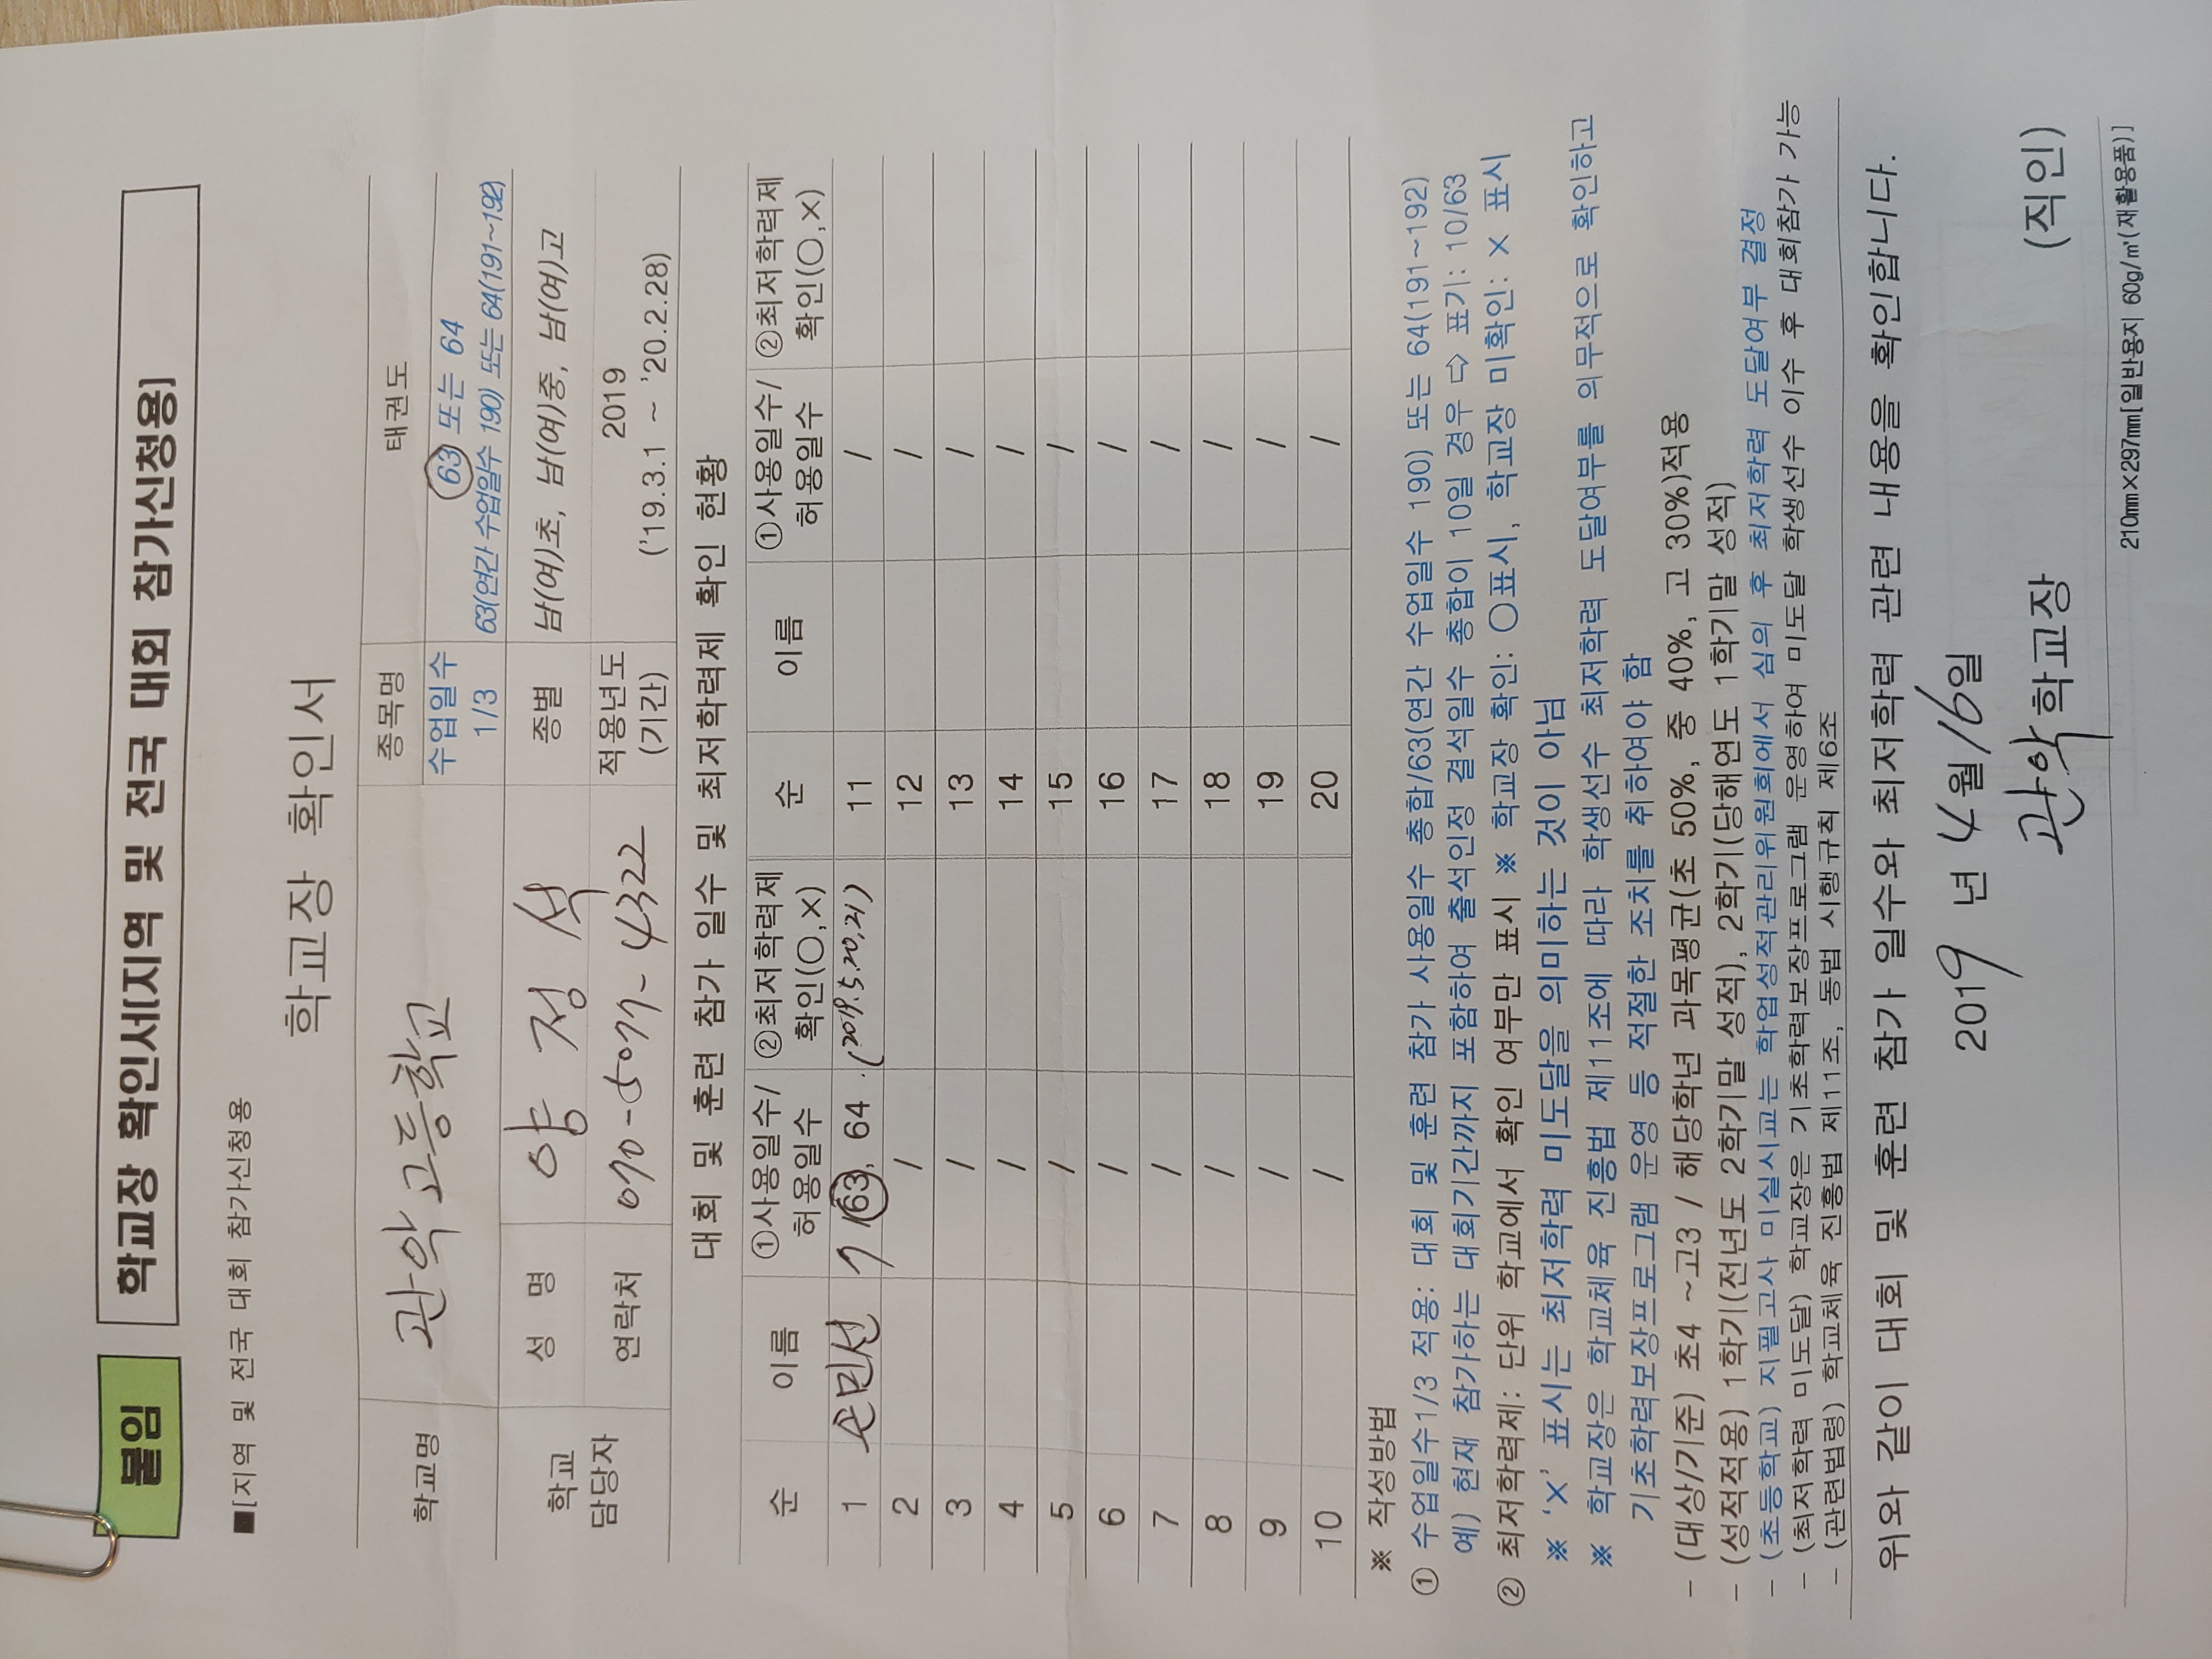 붙임 학교장 확인서(지역 및 전국 대회 참가신청용)
■[지역 및 전국 대회 참가신청용
학교장 확인서
학교명 관악고등학교 종목명 태권도
수업일수 1/3 63 또는 64
63(연간 수업일수 190) 또는 64(191~192)
학교 담당자 성 명 양 정 석 종별 남(여)초, 남(여)중, 남(여)고
연락처 적용년도 (기간) 2019
('19.3.1 ~ '20.2.28)
대회 및 훈련 참가 일수 및 최저학력제 확인 현황
순 이름 ①사용일수/허용일수 ②최저학력제 확인(○,×) 순 이름 ①사용일수/허용일수 ②최저학력제 확인(○,×)
1 손민선 7 /63, 64 (2019.5.20,21) 11 /
2 / 12 /
3 / 13 /
4 / 14 /
5 / 15 /
6 / 16 /
7 / 17 /
8 / 18 /
9 / 19 /
10 / 20 /
※ 작성방법
① 수업일수1/3 적용: 대회 및 훈련 참가 사용일수 총합/63(연간 수업일수 190) 또는 64(191~192)
예) 현재 참가하는 대회기간까지 포함하여 출석인정 결석일수 총합이 10일 경우 ⇨ 표기: 10/63
② 최저학력제: 단위 학교에서 확인 여부만 표시 ※ 학교장 확인: ○표시, 학교장 미확인: × 표시
※ '×' 표시는 최저학력 미도달을 의미하는 것이 아님
※ 학교장은 학교체육 진흥법 제11조에 따라 학생선수 최저학력 도달여부를 의무적으로 확인하고
기초학력보장프로그램 운영 등 적절한 조치를 취하여야 함
- (대상/기준) 초4 ~고3 / 해당학년 과목평균(초 50%, 중 40%, 고 30%)적용
- (성적적용) 1학기(전년도 2학기말 성적), 2학기(당해연도 1학기말 성적)
- (초등학교) 지필고사 미실시교는 학업성적관리위원회에서 심의 후 최저학력 도달여부 결정
- (최저학력 미도달) 학교장은 기초학력보장프로그램 운영하여 미도달 학생선수 이수 후 대회참가 가능
- (관련법령) 학교체육 진흥법 제11조, 동법 시행규칙 제6조
위와 같이 대회 및 훈련 참가 일수와 최저학력 관련 내용을 확인합니다.
2019 년 4월 16일
관악학교장 (직인)
210㎜×297㎜[일반용지 60g/㎡(재활용품)]